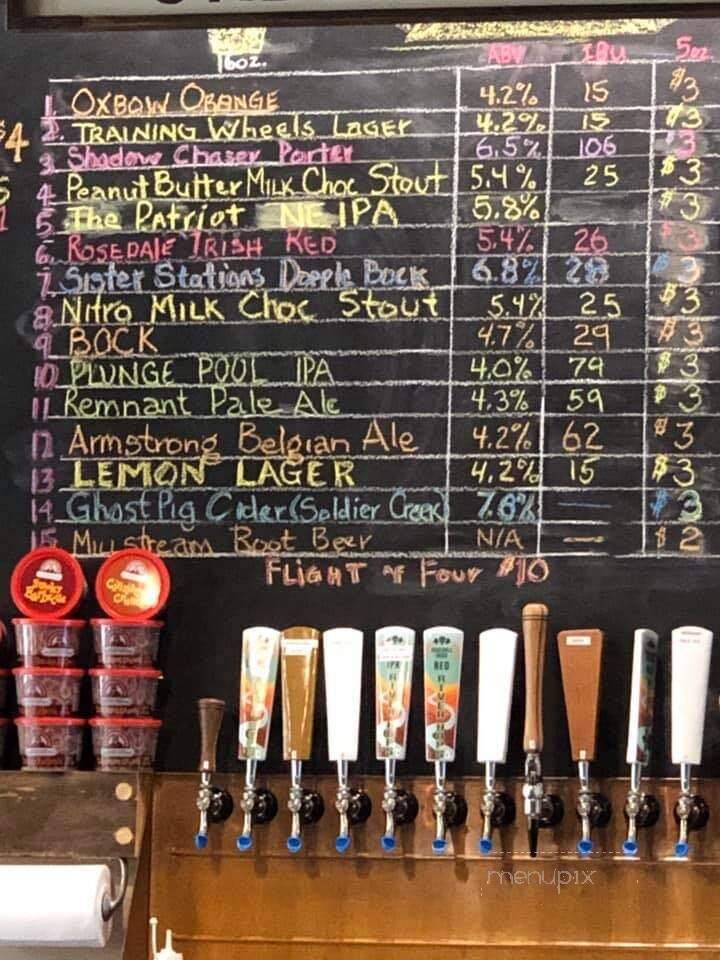 16oz. ABV IBU 5oz
1. OXBOW ORANGE 4.2% 15 $3
$4
2. TRAINING Wheels LAGER 4.2% 15 $3
3 Shadow Chaser Porter 6.5% 106 $3
4. Peanut Butter MILK Choc Stout 5.4% 25 $3
5. The PATRIOT NE IPA 5.8% $3
6. ROSEDALE IRISH RED 5.4% 26 $3
7. Sister Stations Dopple Bock 6.8% 28 $3
8. Nitro MILK Choc Stout 5.4% 25 $3
9 BOCK 4.7% 29 $3
10 PLUNGE POOL IPA 4.0% 79 $3
11 Remnant Pale Ale 4.3% 59 $3
12 Armstrong Belgian Ale 4.2% 62 $3
13 LEMON LAGER 4.2% 15 $3
14 Ghost Pig Cider (Soldier Creek) 7.8% — $3
15 Millstream Root Beer N/A — $2
FLIGHT of Four $10
IPA
RED
RIVER HOPS
menupix